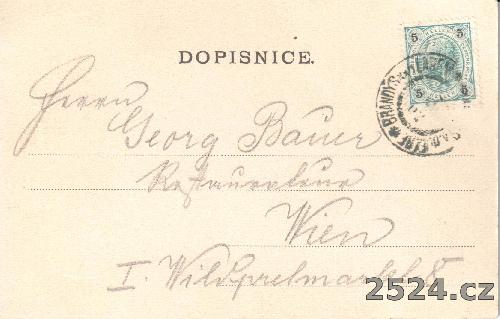 DOPISNICE.
5 5
5 5
BRANDÝS
Herrn
Georg Bauer
Restaurateur
Wien
I. Wildpretmarkt 8
2524.cz